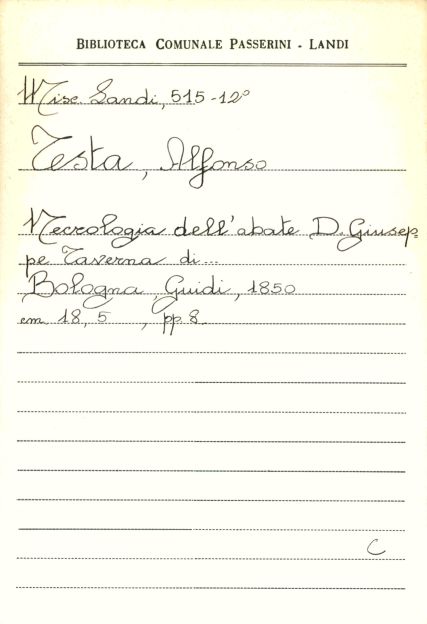 BIBLIOTECA COMUNALE PASSERINI - LANDI
Misc. Landi, 515-12°
Testa, Alfonso
Necrologia dell'abate D. Giusep=
pe Taverna di...
Bologna, Guidi, 1850
cm 18,5 , pp. 8.
C